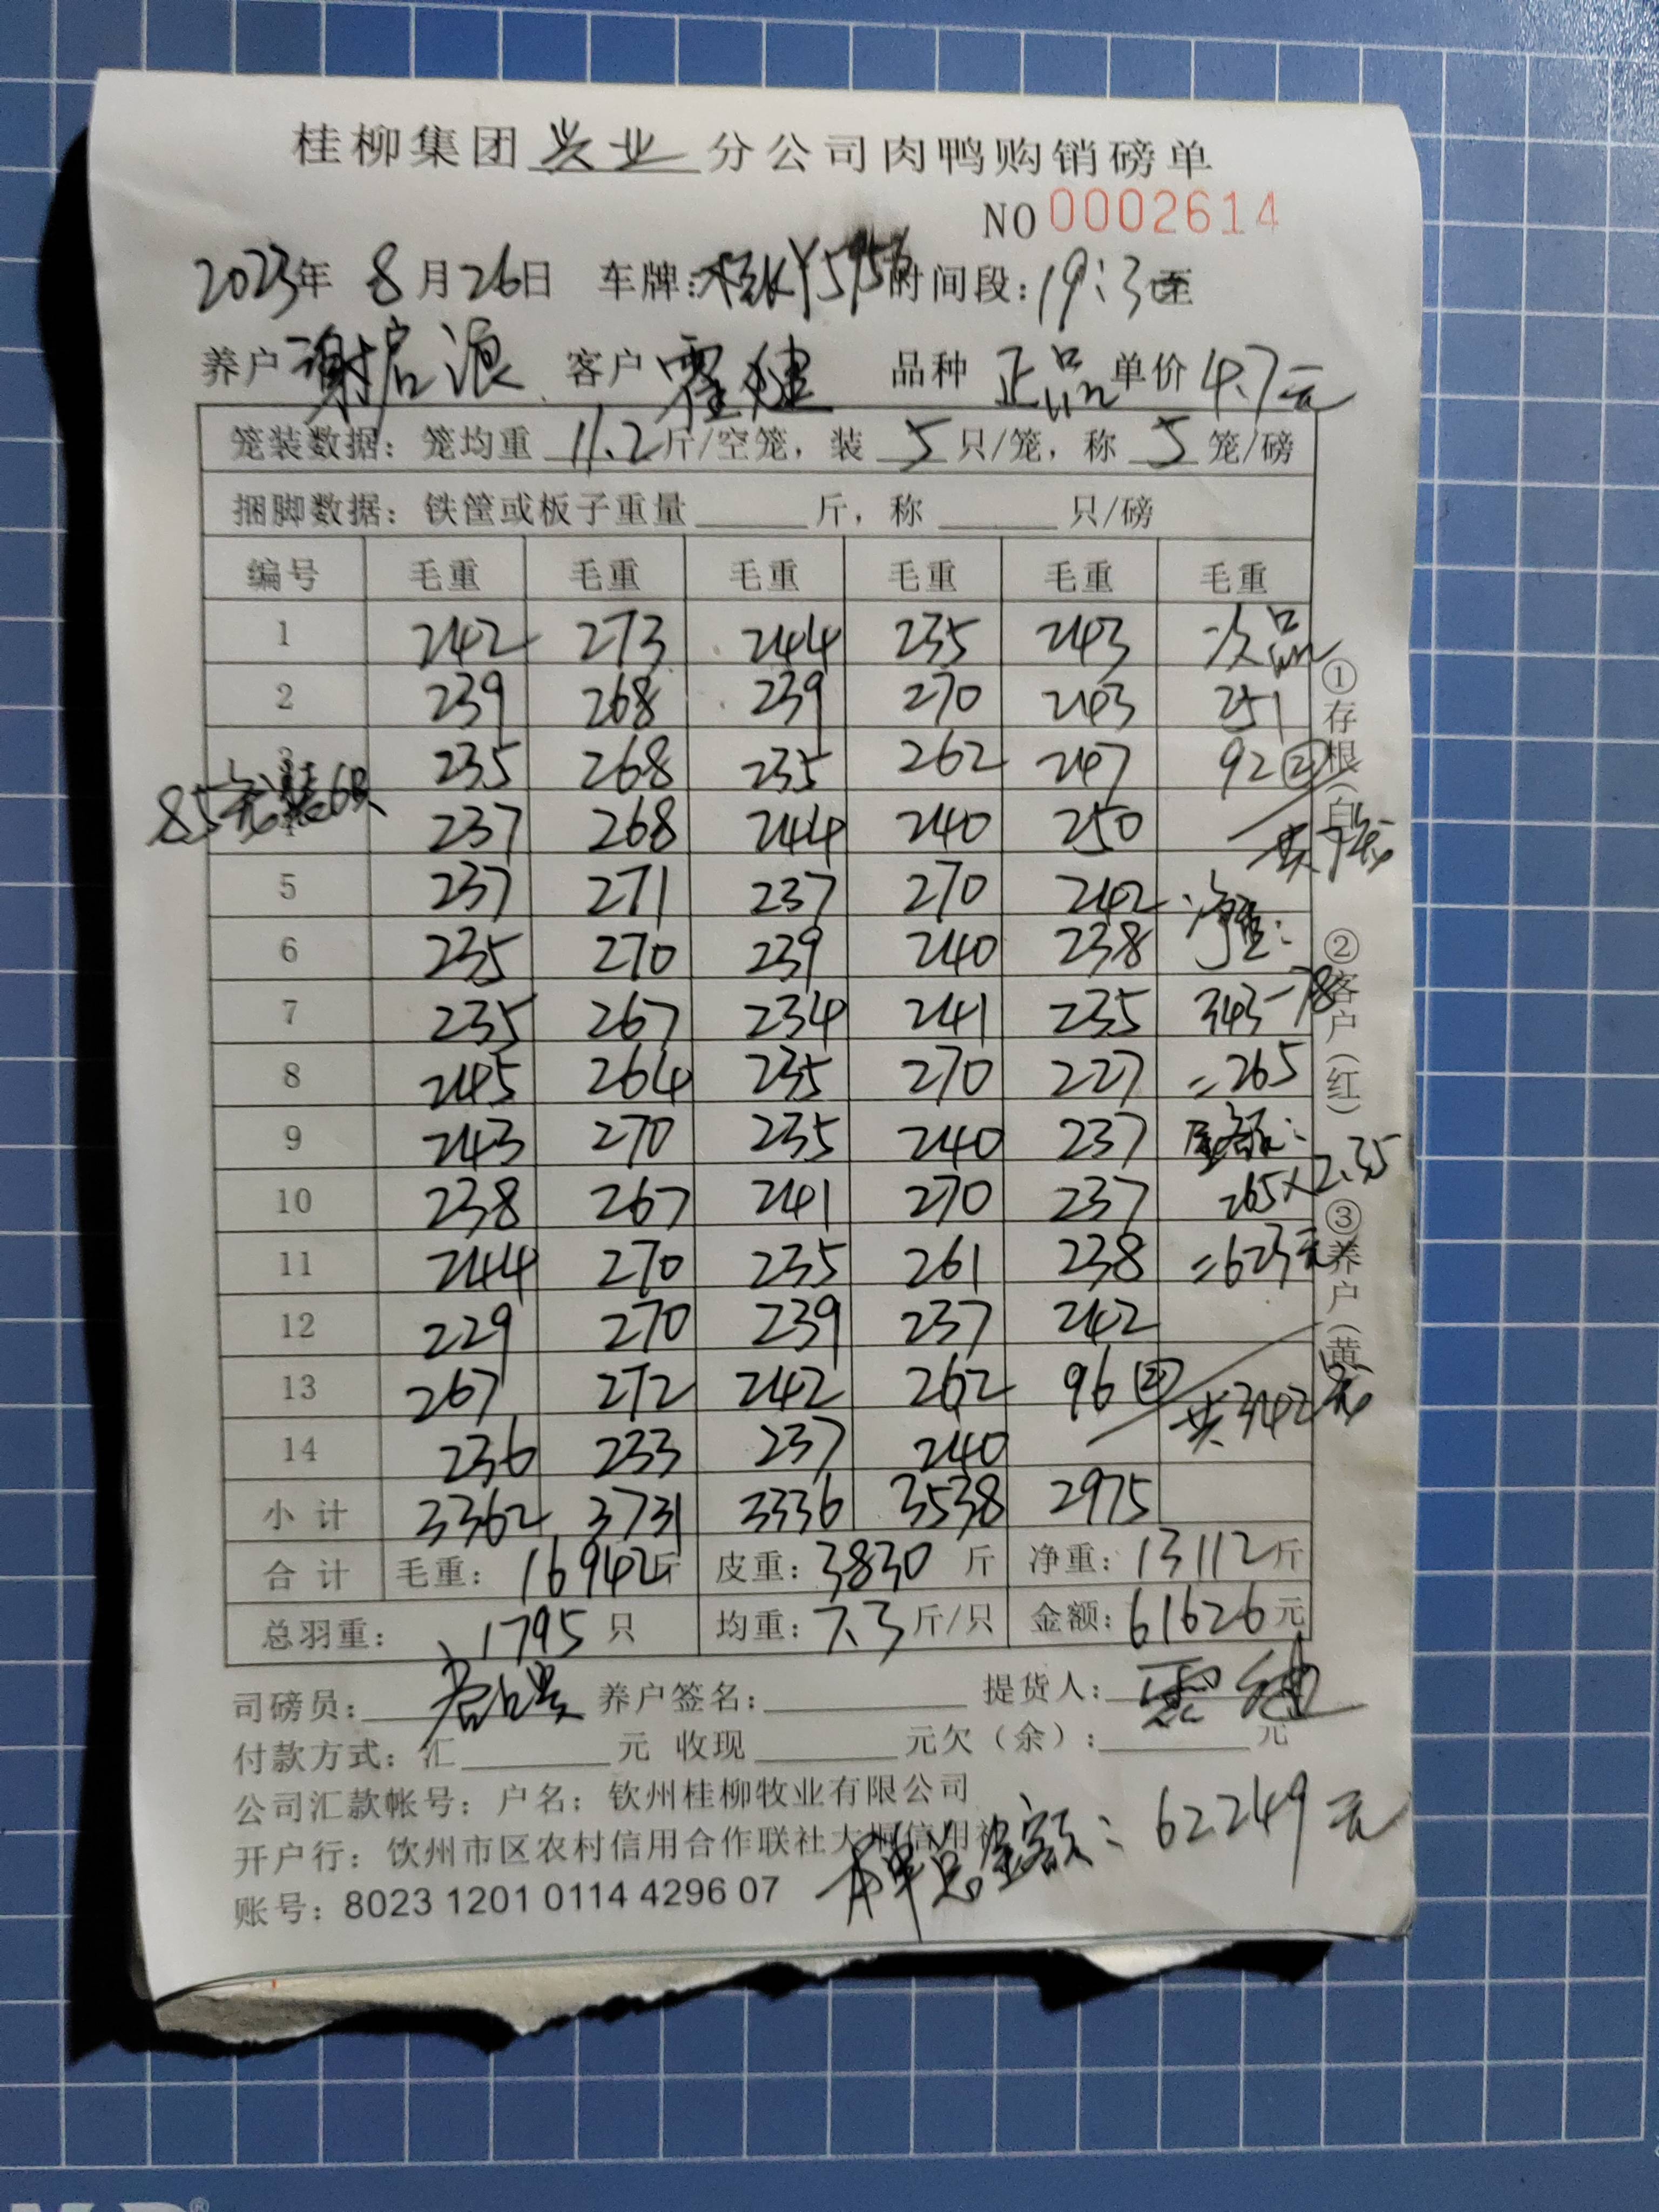 桂柳集团兴业分公司肉鸭购销磅单
NO 0002614
2023年 8月26日 车牌:桂KY5756 时间段:19:3 至
养户 谢启浪 客户 霍健 品种 正品 单价 4.7元
笼装数据: 笼均重 11.2 斤/空笼, 装 5 只/笼, 称 5 笼/磅
捆脚数据: 铁筐或板子重量 斤, 称 只/磅
编号 毛重 毛重 毛重 毛重 毛重 毛重
1 242 273 244 235 243 次品
2 239 268 239 270 243 251
3 235 268 235 262 247 92②
85笼装6只
4 237 268 244 240 250 共7笼
5 237 271 237 270 242 净重:
6 235 270 239 240 238
7 235 267 234 241 235 343-78
8 245 264 235 270 227 =265
9 243 270 235 240 237 金额:
10 238 267 241 270 237 265×2.35
11 244 270 235 261 238 =623元
12 229 270 239 237 242
13 267 272 242 262 96② 共342笼
14 236 233 237 240
小计 3362 3731 3336 3538 2975
合计 毛重: 16942斤 皮重: 3830 斤 净重: 13112斤
总羽重: 1795 只 均重: 7.3斤/只 金额: 61626元
司磅员: 养户签名: 提货人: 霍健
付款方式: 汇 元 收现 元欠(余): 元
公司汇款帐号: 户名: 钦州桂柳牧业有限公司
开户行: 饮州市区农村信用合作联社大垌信用社
账号: 8023 1201 0114 4296 07
本单总金额: 62249元
①存根(白)
②客户(红)
③养户(黄)